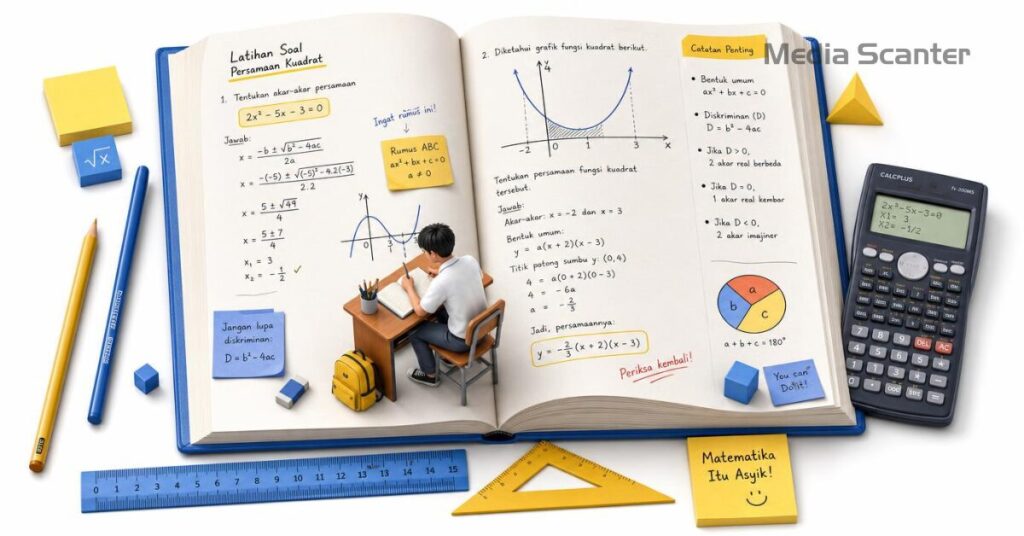 Media Scanter
Latihan Soal
Persamaan Kuadrat
1. Tentukan akar-akar persamaan
2x² - 5x - 3 = 0
Ingat rumus ini!
↓
Jawab:
x = (-b ± √(b² - 4ac)) / 2a
x = (-(-5) ± √((-5)² - 4.2(-3))) / 2.2
x = (5 ± √49) / 4
x = (5 ± 7) / 4
x₁ = 3
x₂ = -1/2 ✓
Rumus ABC
ax² + bx + c = 0
a ≠ 0
y
x
0
1
3
Jangan lupa
diskriminan:
D = b² - 4ac
2. Diketahui grafik fungsi kuadrat berikut.
y
4
-2 0 1 3 x
Tentukan persamaan fungsi kuadrat
tersebut.
Jawab:
Akar-akar: x = -2 dan x = 3
Bentuk umum:
y = a(x + 2)(x - 3)
Titik potong sumbu y: (0,4)
4 = a(0 + 2)(0 - 3)
4 = -6a
a = -2/3
Jadi, persamaannya:
y = -2/3 (x + 2)(x - 3)
Periksa kembali!
Catatan Penting
• Bentuk umum
ax² + bx + c = 0
• Diskriminan (D)
D = b² - 4ac
• Jika D > 0,
2 akar real berbeda
• Jika D = 0,
1 akar real kembar
• Jika D < 0,
2 akar imajiner
a
b
c
a + b + c = 180°
You can
Do It!
√x
CALCPLUS
2x²-5x-3=0
X1= 3
X2= -1/2
7 8 9 DEL AC
0 1 2 3 4 5 6 7 8 9 10 11 12 13 14 15
Matematika
Itu Asyik!